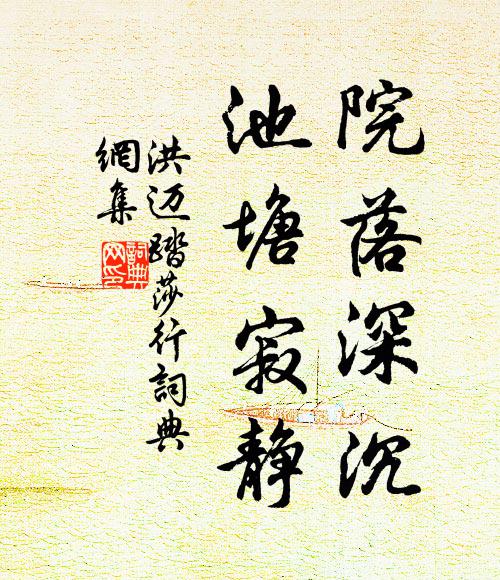 院落深沉
池塘寂静
洪迈踏莎行詞典
網集
詞典网印